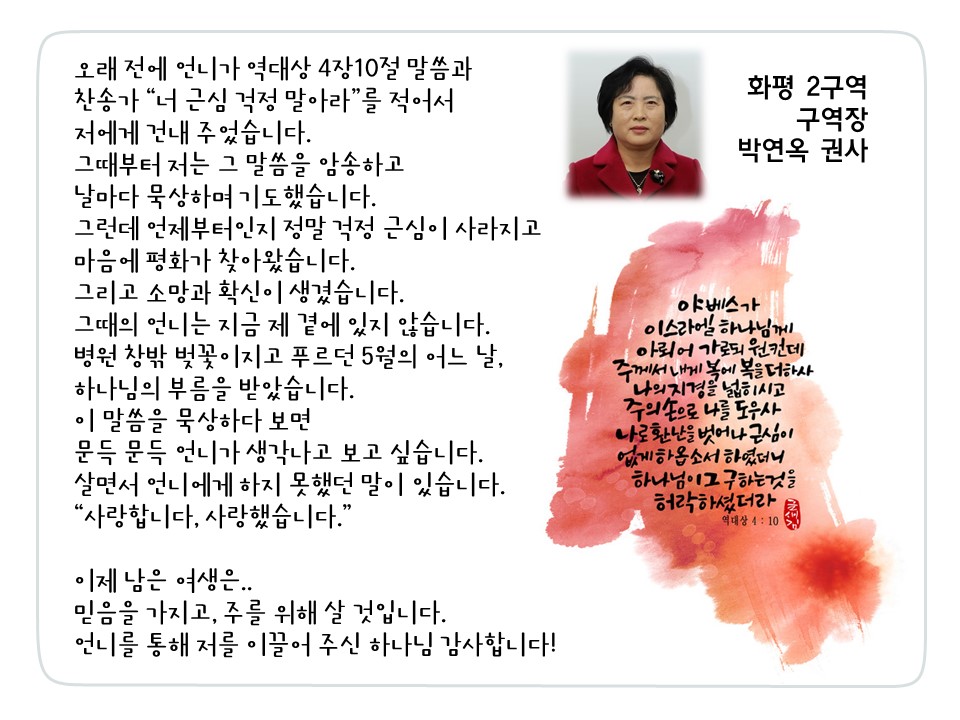 오래 전에 언니가 역대상 4장10절 말씀과
찬송가 “너 근심 걱정 말아라”를 적어서
저에게 건내 주었습니다.
그때부터 저는 그 말씀을 암송하고
날마다 묵상하며 기도했습니다.
그런데 언제부터인지 정말 걱정 근심이 사라지고
마음에 평화가 찾아왔습니다.
그리고 소망과 확신이 생겼습니다.
그때의 언니는 지금 제 곁에 있지 않습니다.
병원 창밖 벚꽃이지고 푸르던 5월의 어느 날,
하나님의 부름을 받았습니다.
이 말씀을 묵상하다 보면
문득 문득 언니가 생각나고 보고 싶습니다.
살면서 언니에게 하지 못했던 말이 있습니다.
“사랑합니다, 사랑했습니다.”
이제 남은 여생은..
믿음을 가지고, 주를 위해 살 것입니다.
언니를 통해 저를 이끌어 주신 하나님 감사합니다!
화평 2구역
구역장
박연옥 권사
야베스가
이스라엘 하나님께
아뢰어 가로되 원컨데
주께서 내게 복에 복을 더하사
나의 지경을 넓히시고
주의 손으로 나를 도우사
나로 환난을 벗어나 근심이
없게 하옵소서 하였더니
하나님이 그 구하는것을
허락하셨더라
역대상 4 : 10